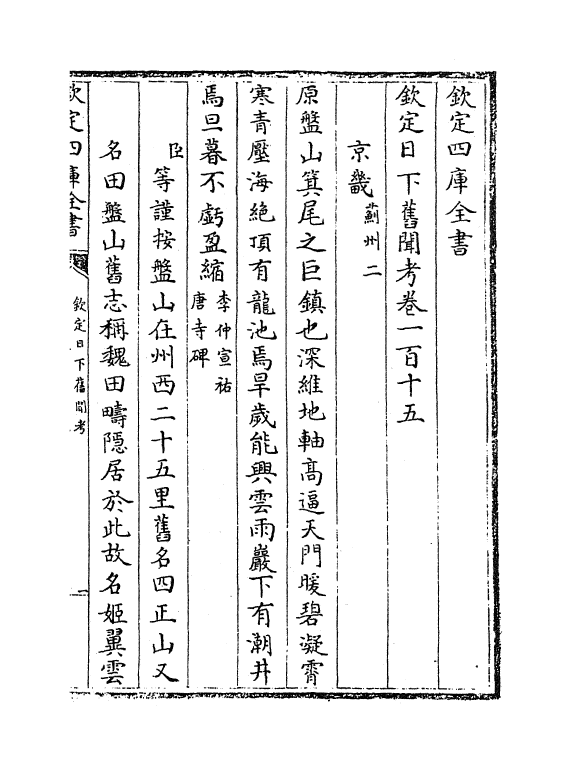 欽定四庫全書
欽定日下舊聞考卷一百十五
京畿薊州二
原盤山箕尾之巨鎮也深維地軸高逼天門暖碧凝霄
寒青壓海絶頂有龍池焉旱歲能興雲雨巖下有潮井
焉旦暮不虧盈縮李仲宣祐唐寺碑
臣等謹按盤山在州西二十五里舊名四正山又
名田盤山舊志稱魏田疇隱居於此故名姬翼雲
欽定四庫全書
欽定日下舊聞考
一